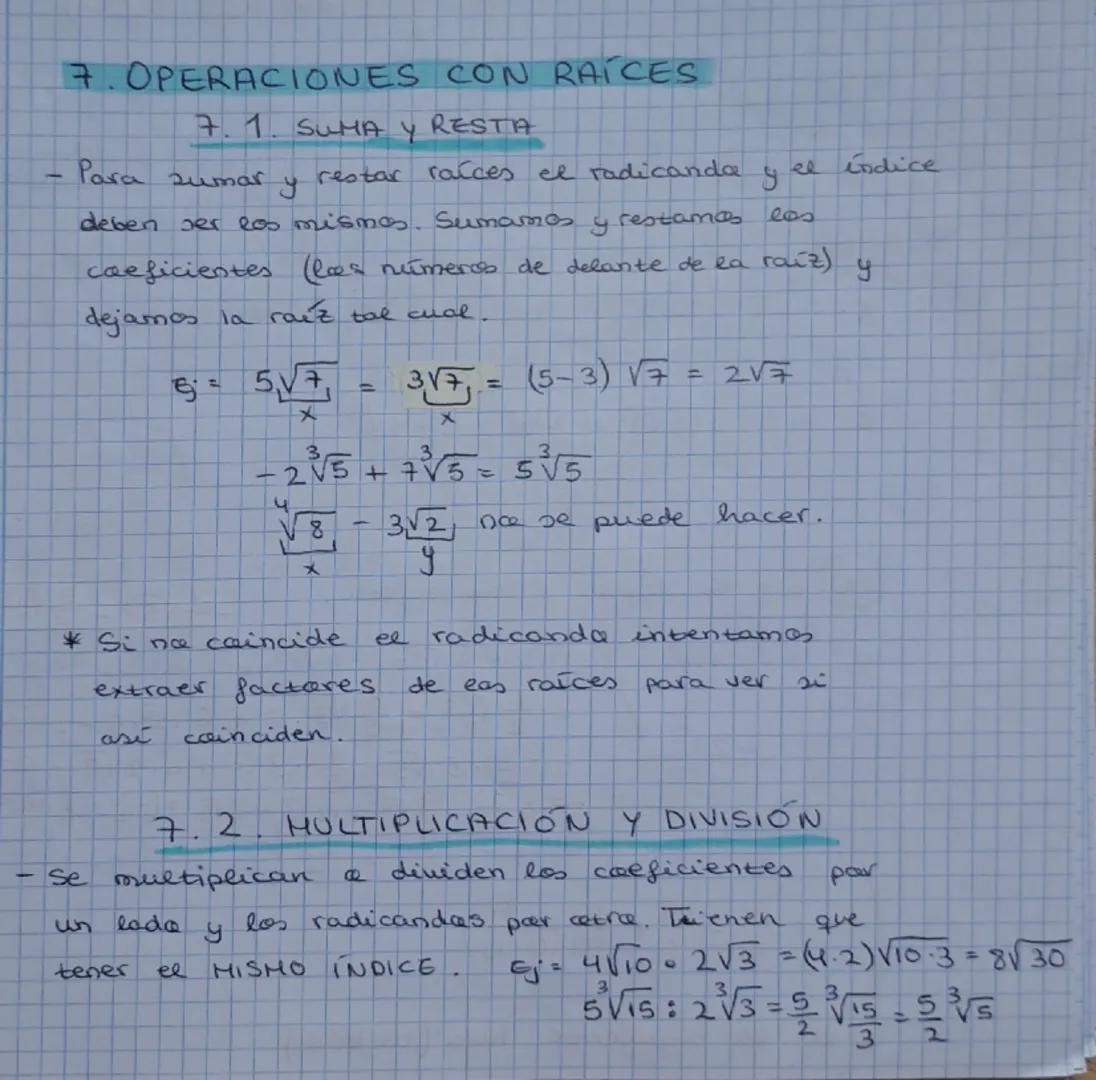 7. OPERACIONES CON RAÍCES
7.1. SUMA Y RESTA
- Para sumar y restar raíces el radicando y el índice
deben ser los mismos. Sumamos y restamos los
coeficientes (los números de delante de la raíz) y
dejamos la raíz tal cual.
Ej = 5√7 = 3√7 = (5-3) √7 = 2√7
x x
-2∛5 + 7∛5 = 5∛5
∜8 - 3√2 no se puede hacer.
x y
* Si no coincide el radicando intentamos
extraer factores de las raíces para ver si
así coinciden.
7.2. MULTIPLICACIÓN Y DIVISIÓN
- Se multiplican o dividen los coeficientes por
un lado y los radicandos por otro. Tienen que
tener el MISMO ÍNDICE. Ej = 4√10 • 2√3 = (4·2)√10·3 = 8√30
5∛15 : 2∛3 = 5/2 ∛15/3 = 5/2 ∛5